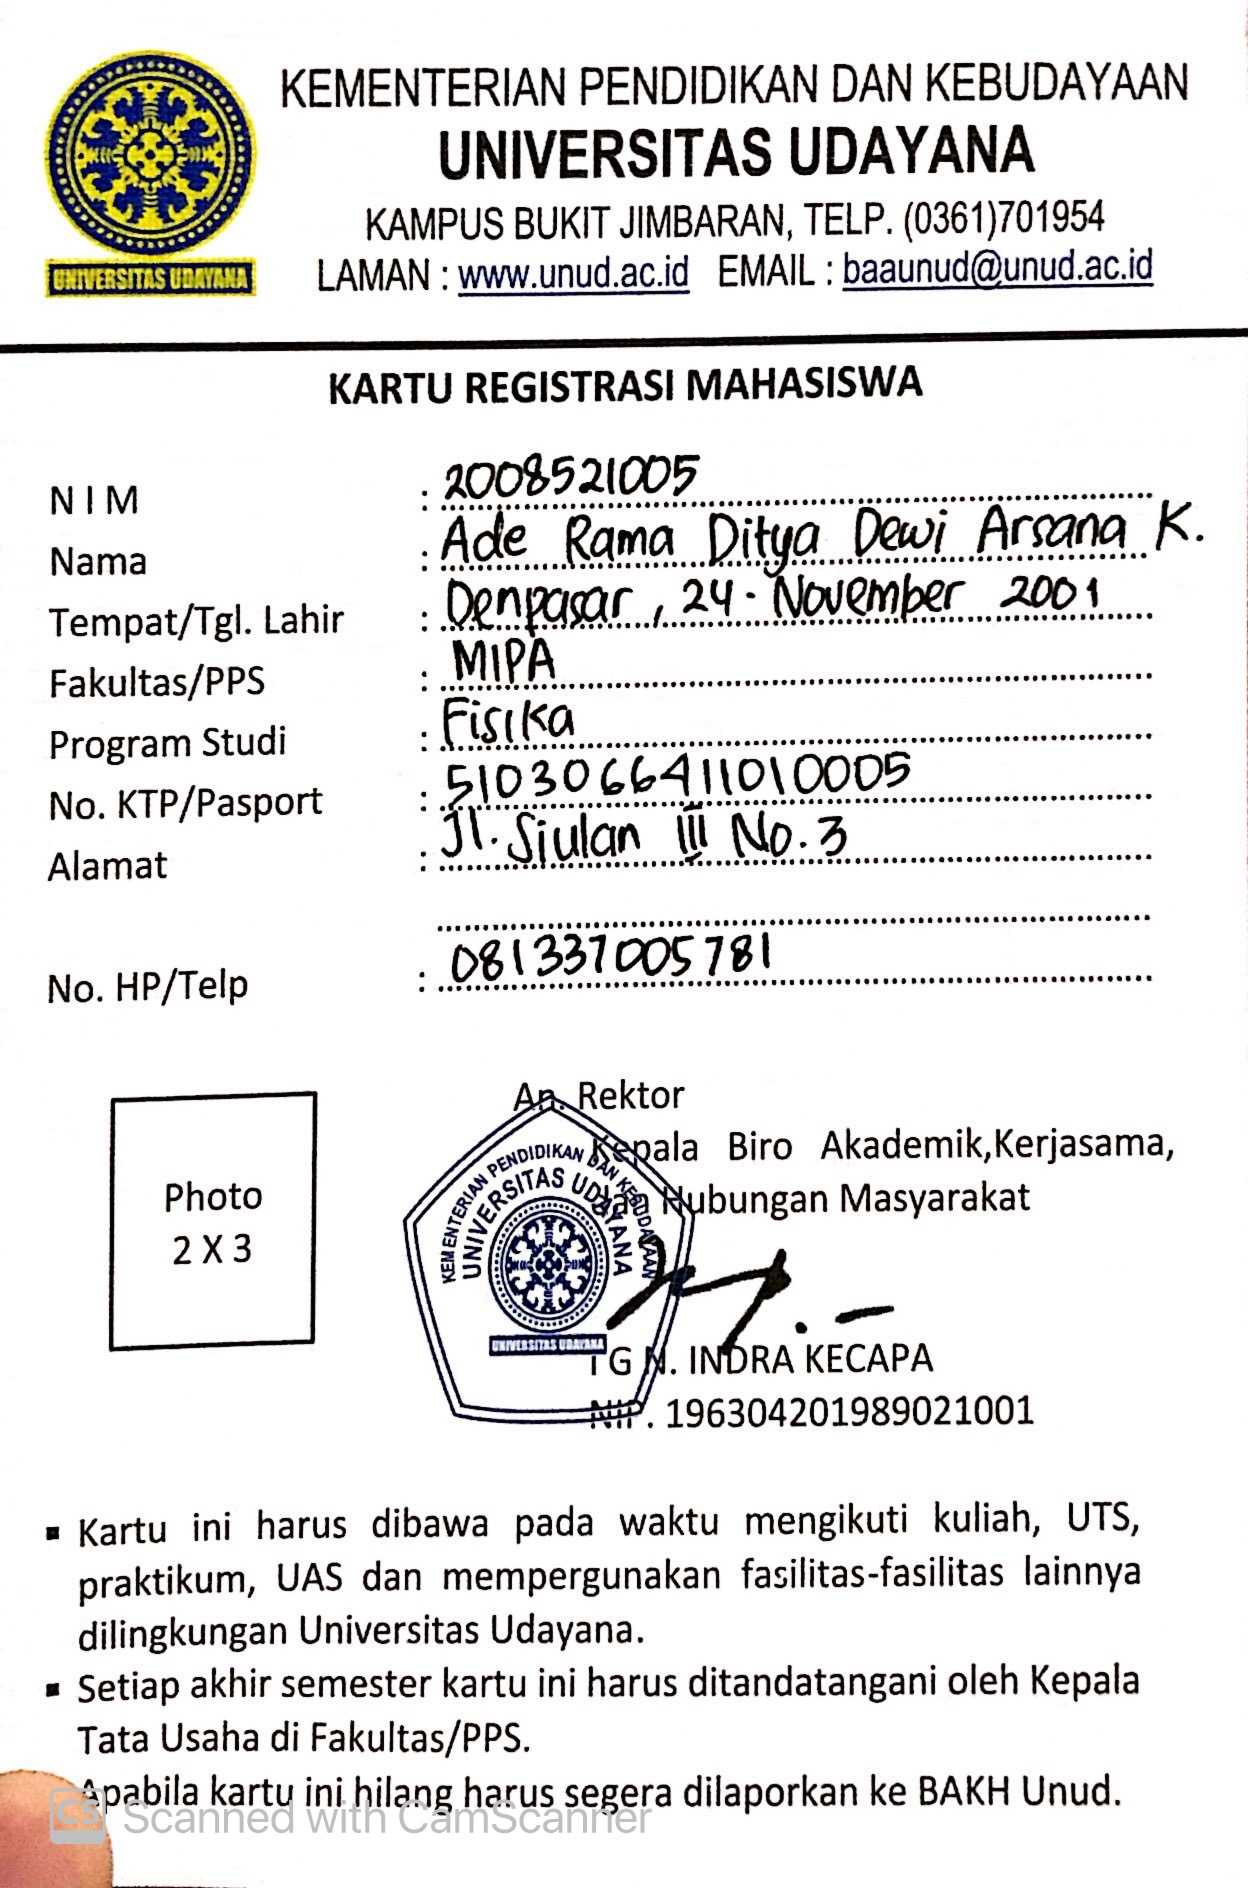 KEMENTERIAN PENDIDIKAN DAN KEBUDAYAAN
UNIVERSITAS UDAYANA
KAMPUS BUKIT JIMBARAN, TELP. (0361)701954
LAMAN : www.unud.ac.id EMAIL : baaunud@unud.ac.id
UNIVERSITAS UDAYANA
KARTU REGISTRASI MAHASISWA
N I M : 2008521005
Nama : Ade Rama Ditya Dewi Arsana K.
Tempat/Tgl. Lahir : Denpasar, 24 - November 2001
Fakultas/PPS : MIPA
Program Studi : Fisika
No. KTP/Pasport : 5103066411010005
Alamat : Jl. Siulan III No. 3
No. HP/Telp : 081337005781
Photo
2 X 3
An. Rektor
Kepala Biro Akademik,Kerjasama,
dan Hubungan Masyarakat
KEMENTERIAN PENDIDIKAN DAN KEBUDAYAAN
UNIVERSITAS UDAYANA
UNIVERSITAS UDAYANA
G N. INDRA KECAPA
NIP. 196304201989021001
▪ Kartu ini harus dibawa pada waktu mengikuti kuliah, UTS,
praktikum, UAS dan mempergunakan fasilitas-fasilitas lainnya
dilingkungan Universitas Udayana.
▪ Setiap akhir semester kartu ini harus ditandatangani oleh Kepala
Tata Usaha di Fakultas/PPS.
Apabila kartu ini hilang harus segera dilaporkan ke BAKH Unud.
CS Scanned with CamScanner